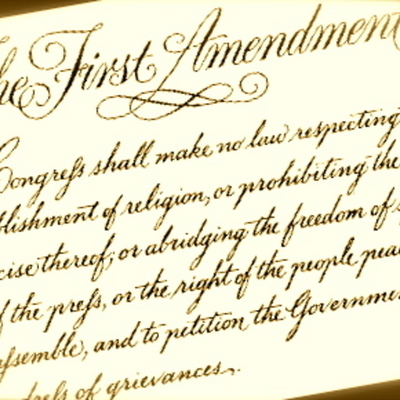 he First Amendment
Congreſs shall make no law respecting
blishment of religion, or prohibiting the
cise thereof; or abridging the freedom of s
f the preſs, or the right of the people pea
aſsemble, and to petition the Governme
dreſs of grievances.